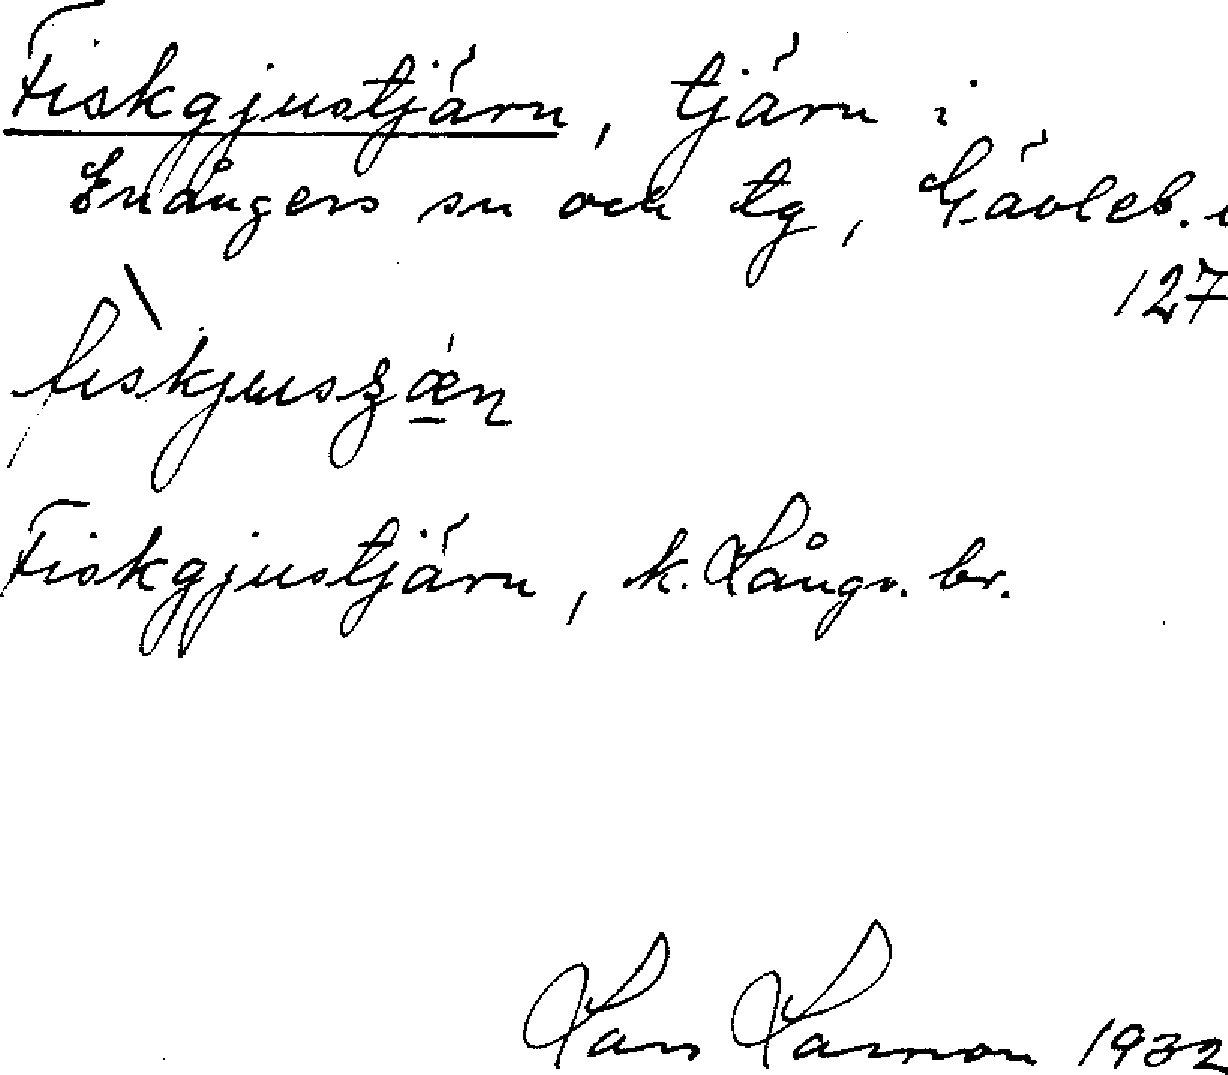 Fiskgjustjärn, tjärn i
Enångers sn och tg, Gävleb. l
127
Fiskgjustjärn, k. Långv. br.
Lars Larsson 1932